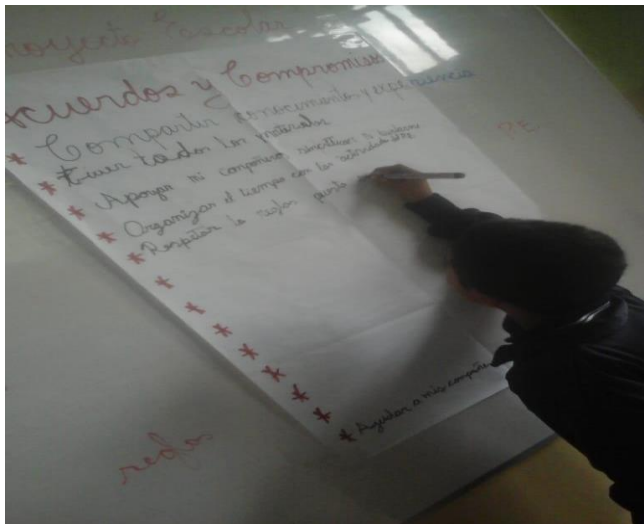 Proyecto Escolar
Acuerdos y Compromisos
* Compartir conocimientos y experiencia
* Traer todos los materiales
* Apoyar mi compañero
* Organizar el tiempo con las actividades
* Respetar la reglas
*
*
*
*
*
*
* Ayudar a mis compañe
P.E
reglas